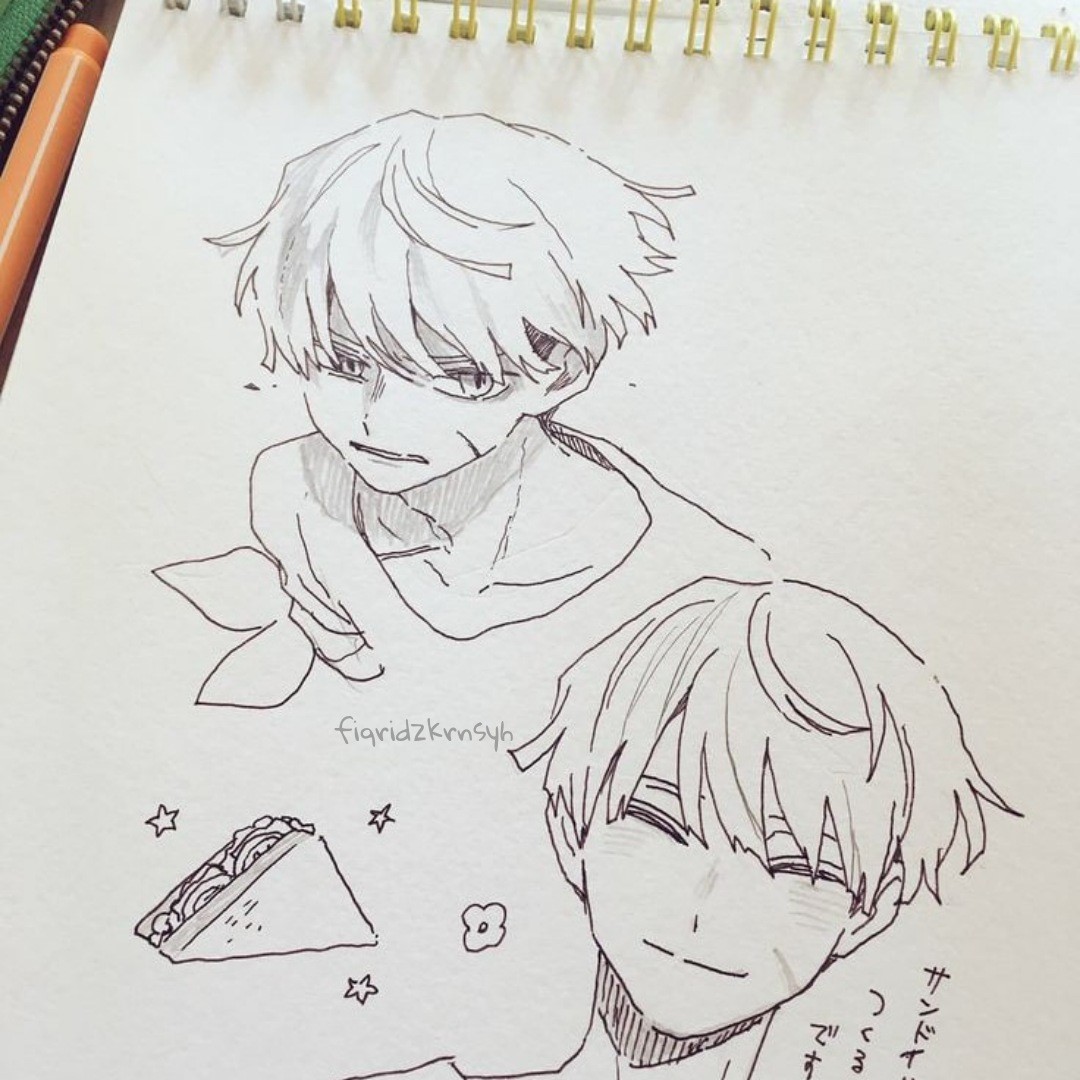 fiqridzkrnsyh
サンドイ
つくる
です